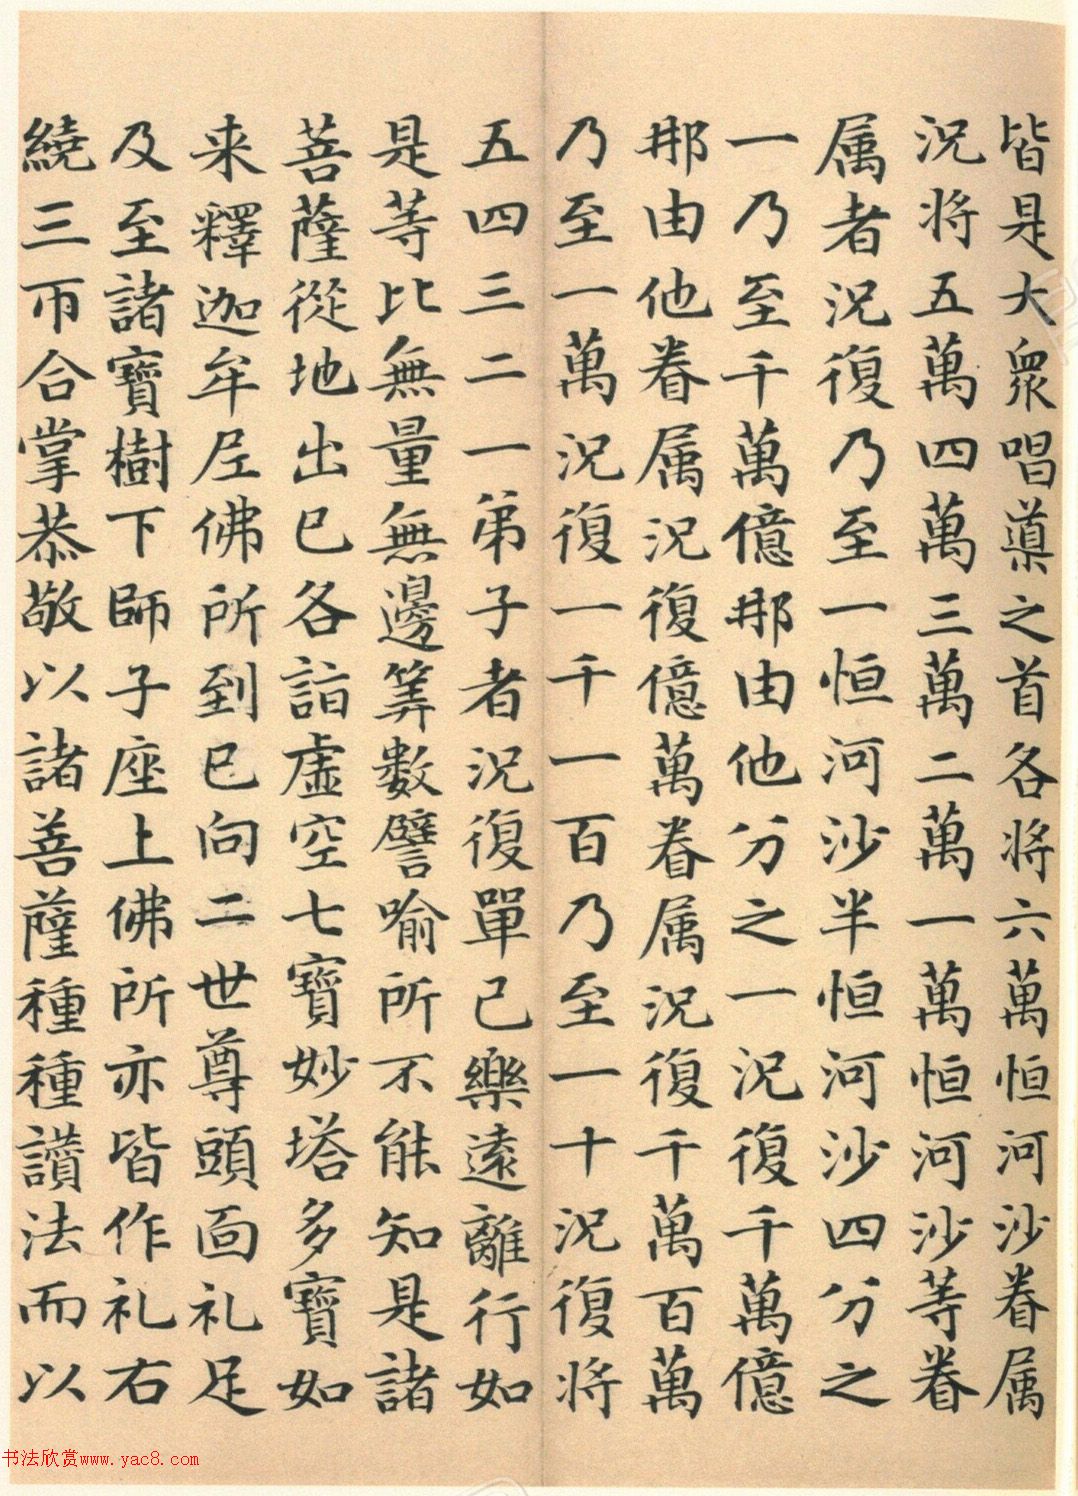 皆是大衆唱導之首各將六萬恒河沙眷属
況將五萬四萬三萬二萬一萬恒河沙等眷
属者況復乃至一恒河沙半恒河沙四分之
一乃至千萬億那由他分之一況復千萬億
那由他眷属況復億萬眷属況復千萬百萬
乃至一萬況復一千一百乃至一十況復將
五四三二一弟子者況復單己樂遠離行如
是等比無量無邊筭數譬喻所不能知是諸
菩薩從地出已各詣虛空七寶妙塔多寶如
来釋迦牟尼佛所到已向二世尊頭面礼足
及至諸寶樹下師子座上佛所亦皆作礼右
繞三帀合掌恭敬以諸菩薩種種讃法而以
书法欣赏www.yac8.com